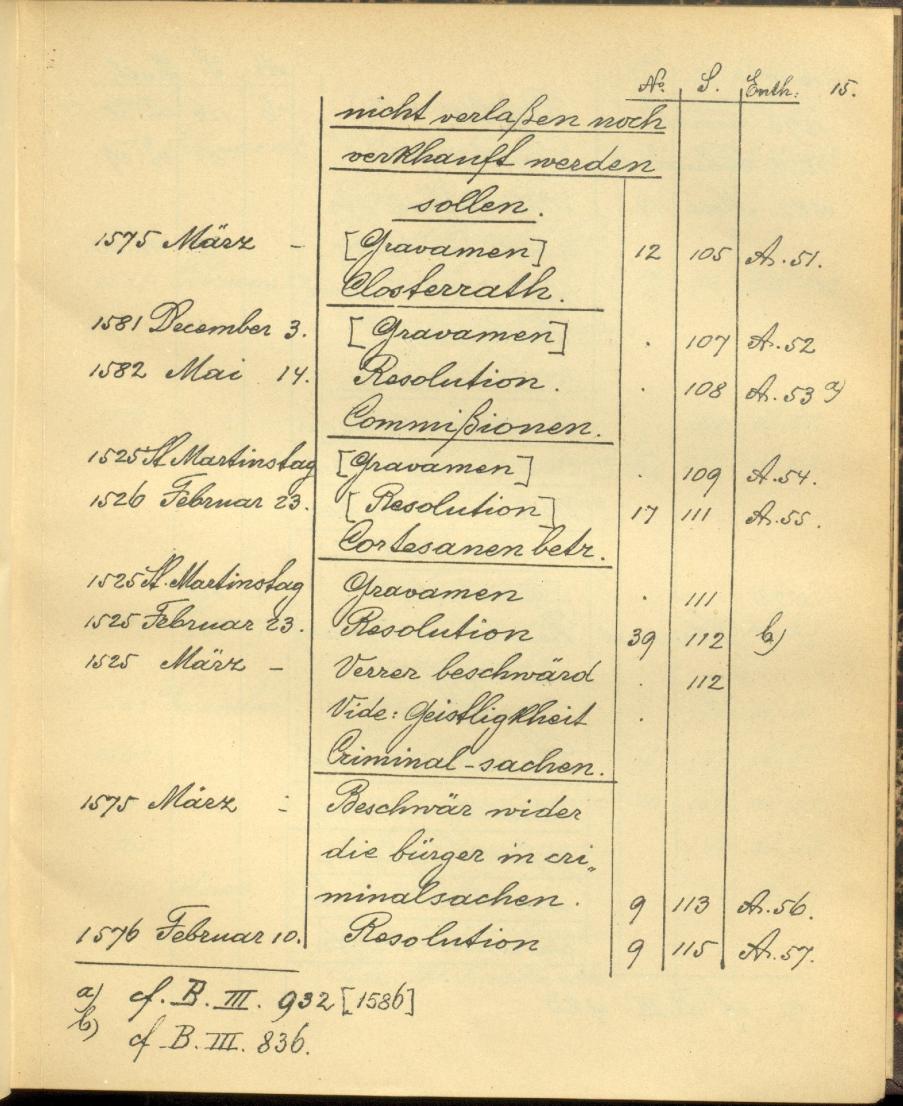 No. S. Enth: 15.
nicht verlaßen noch
verkhauft werden
sollen.
1575 März - [Gravamen] 12 105 A. 51.
Closterrath.
1581 December 3. [Gravamen] . 107 A. 52
1582 Mai 14. Resolution. . 108 A. 53 a)
Commißionen.
1525 St. Martinstag [Gravamen] . 109 A. 54.
1526 Februar 23. [Resolution] 17 111 A. 55.
Cortesanen betr.
1525 St. Martinstag Gravamen . 111
1525 Februar 23. Resolution 39 112 b)
1525 März - Verrer beschwärd . 112
Vide: Geistligkheit .
Criminal-sachen.
1575 März - Beschwär wider
die bürger in cri„
minalsachen. 9 113 A. 56.
1576 Februar 10. Resolution 9 115 A. 57.
a) cf. B. III. 932 [1586]
b) cf B. III. 836.